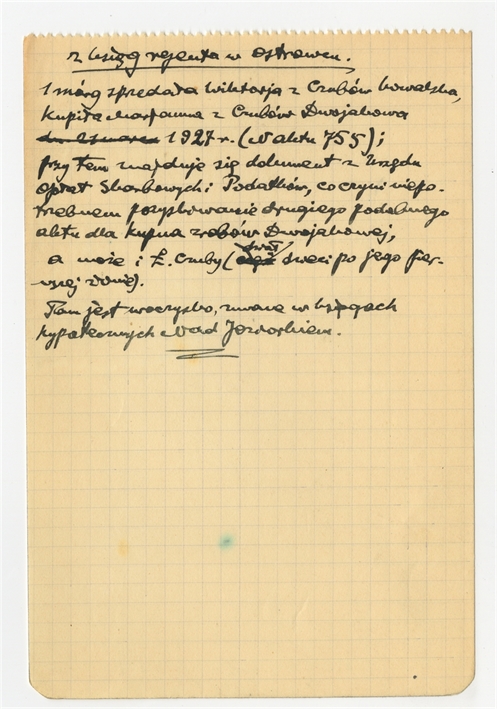 z ksiąg rejenta w Ostrowcu.
1 mórg sprzedała Wiktorja z Czubów Kowalska,
Kupiła Marjanna z Czubów Dwojakowa
1927 r. (N aktu 755);
przy tem znajduje się dokument z Urzędu
Opłat Skarbowych i Podatków, co czyni niepo-
trzebnem pozyskiwanie drugiego podobnego
aktu dla kupna z robów Dwojakowej,
a może i Ł. Czuby ( dwóch dzieci po jego pier-
wszej żonie).
Tam jest uroczysko, zwane w księgach
hypotecznych Nad Jeziorkiem.